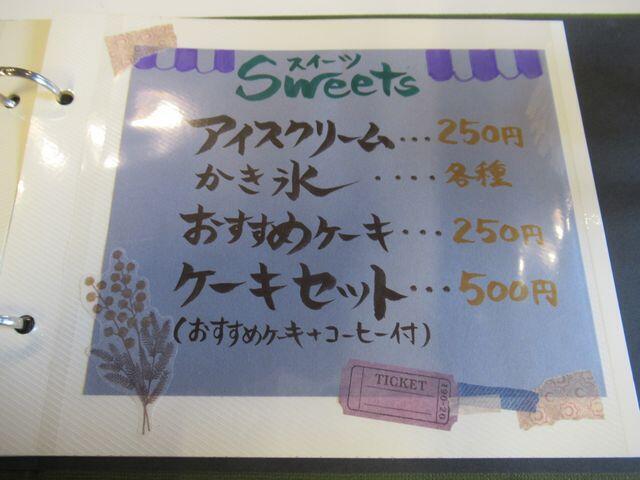 スイーツ
Sweets
アイスクリーム…250円
かき氷‥‥各種
おすすめケーキ…250円
ケーキセット…500円
(おすすめケーキ+コーヒー付)
TICKET
190-20